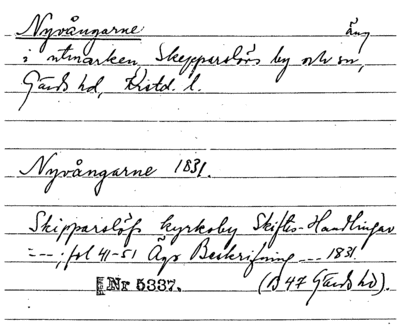 Nyvångarne äng
i utmarken, Skepparslövs by och sn,
Gärds hd, Kristd. l.
Nyvångarne 1831.
Skipparslöfs kyrkoby Skiftes-Handlingar
---; fol 41-51 Ägo Beskrifning --- 1831.
Nr 5337. (B 47 Gärds hd).